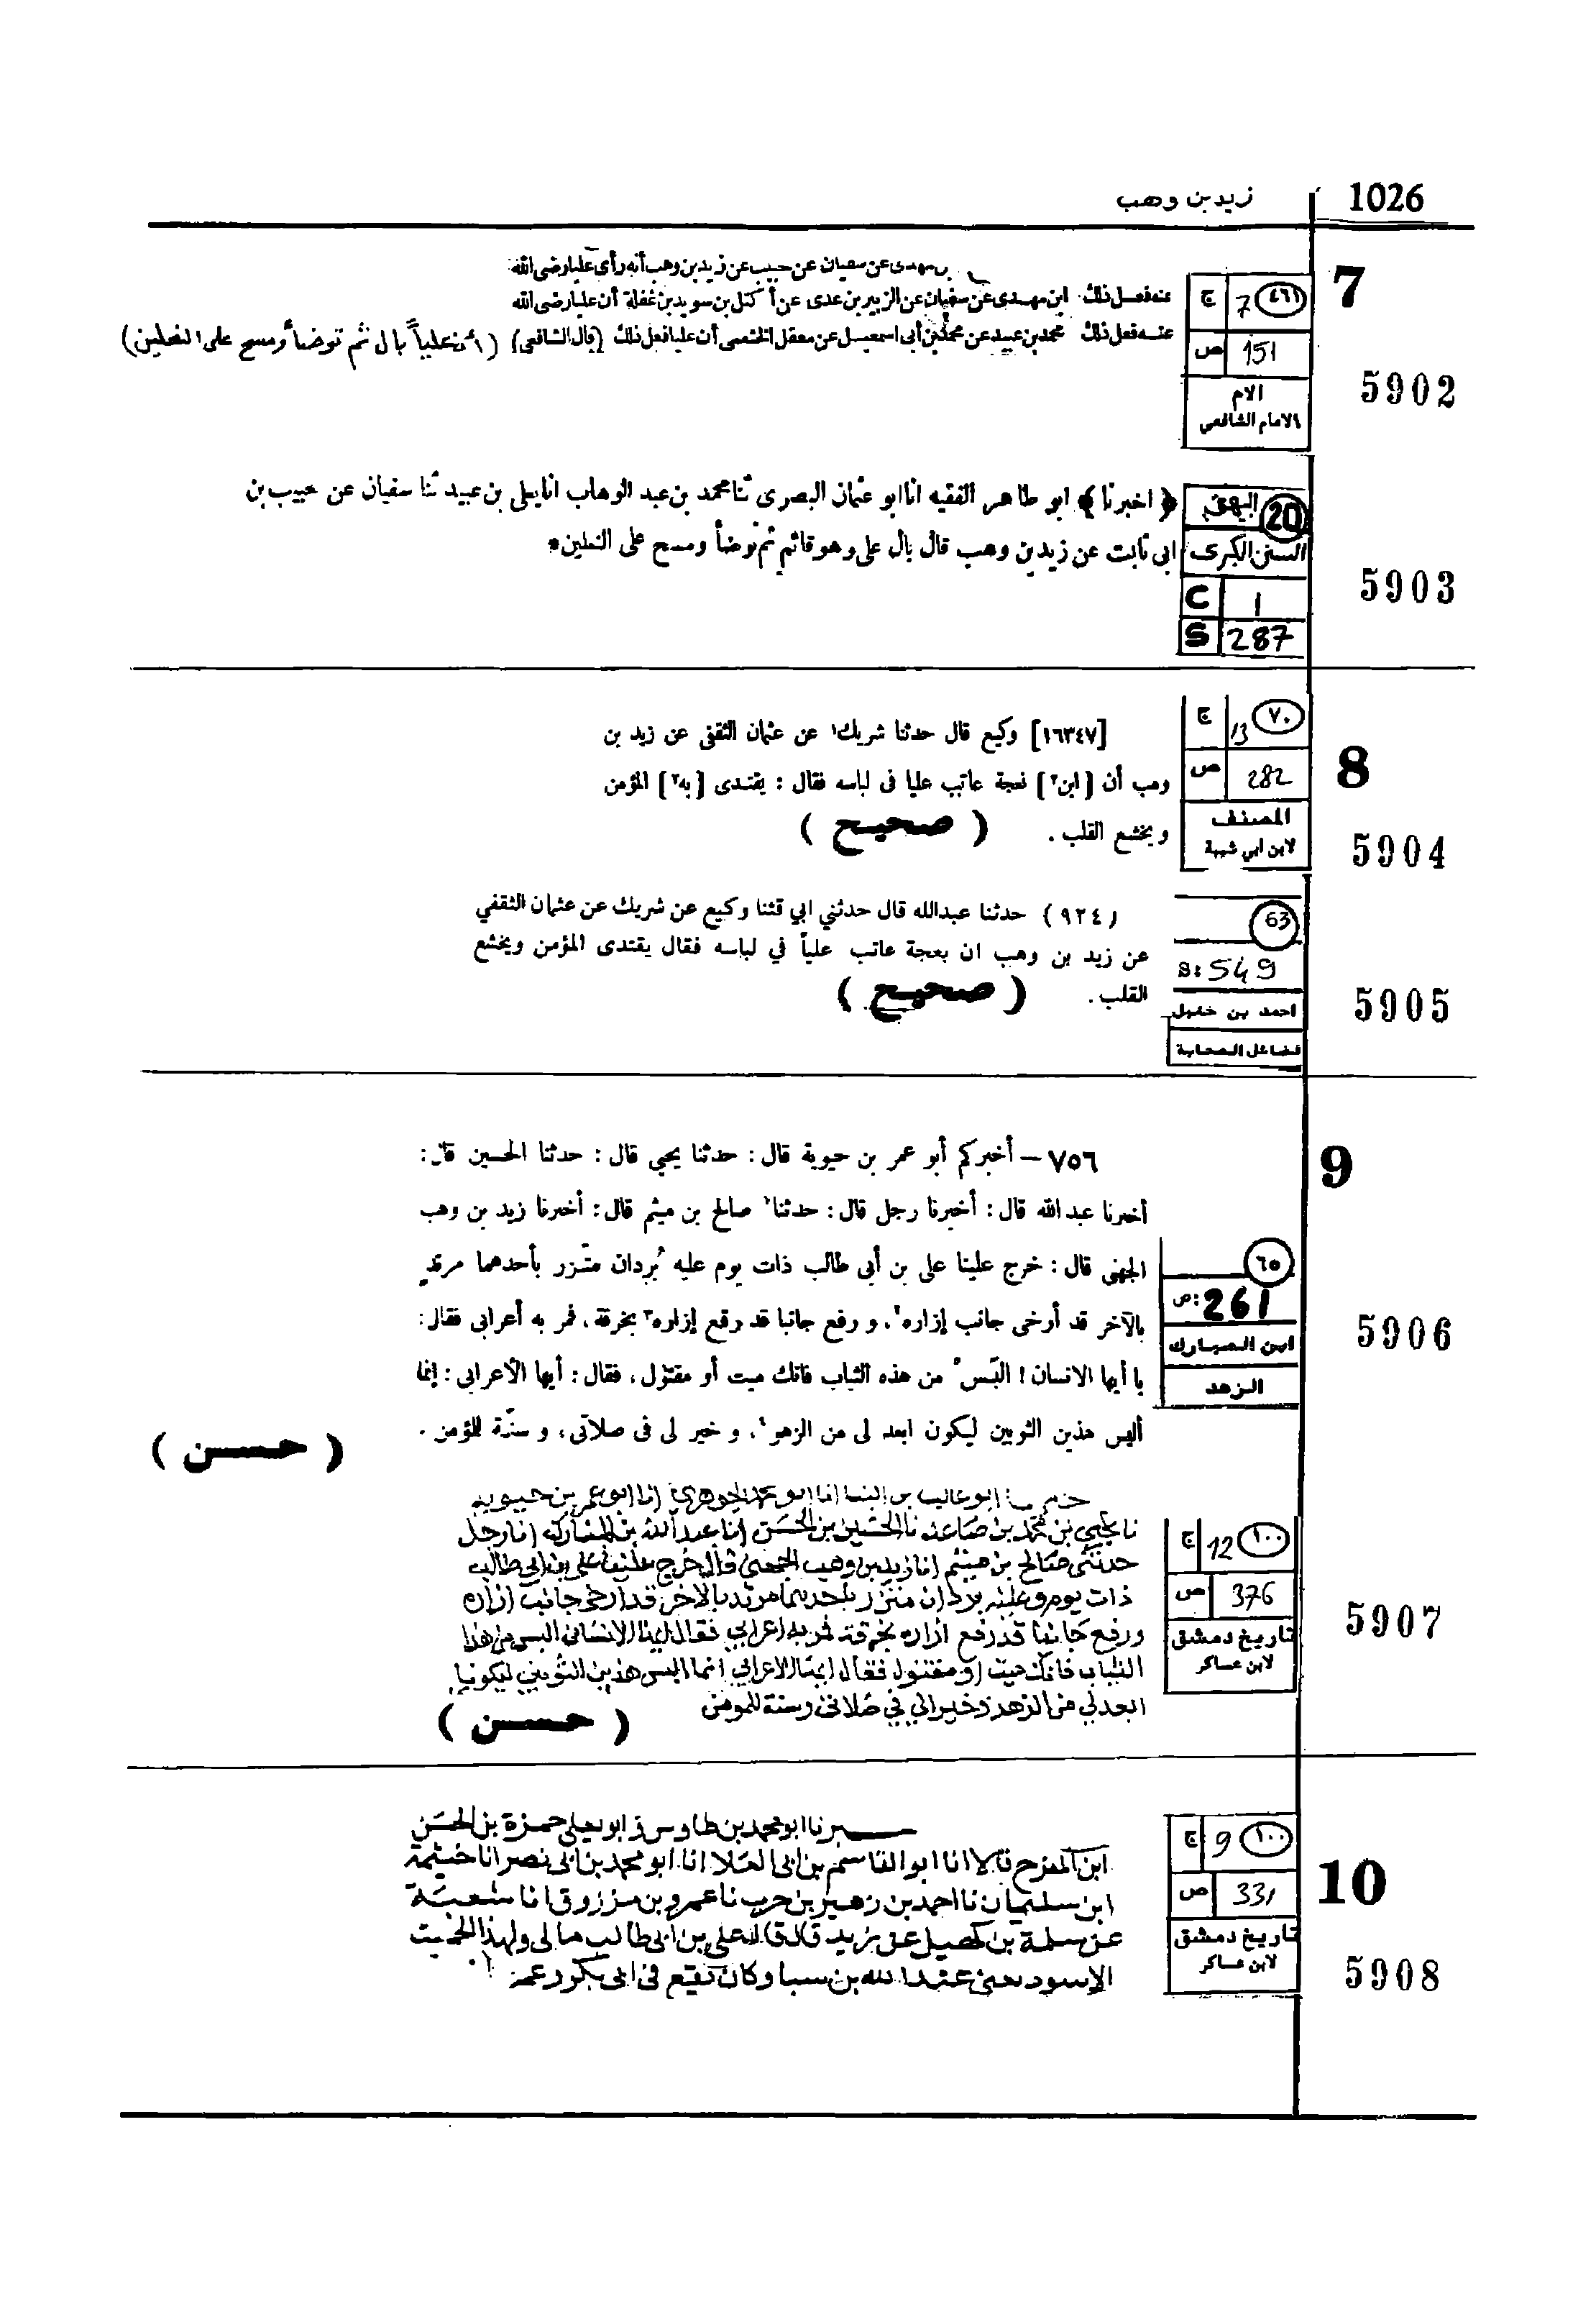 1026
زيد بن وهب
7
ج 7 (٤٦١)
ص 151
الام
الامام الشافعي
5902
بن مهدى عن سفيان عن حبيب عن زيد بن وهب أنه رأى عليا رضى الله
عنه فعل ذلك ابن مهدى عن سفيان عن الزبير بن عدى عن أكتل بن سويد بن غفلة أن عليا رضى الله
عنه فعل ذلك محمد بن عبيد عن محمد بن أبى اسمعيل عن معقل الخثعمى أن عليا فعل ذلك (قال الشافعى) (أن علياً بال ثم توضأ ومسح على النعلين)
البيهقى 20
السنن الكبرى
C 1
S 287
5903
﴿ اخبرنا ﴾ ابو طاهر الفقيه انا ابو عثمان البصرى ثنا محمد بن عبد الوهاب انا يعلى بن عبيد ثنا سفيان عن حبيب بن
ابى ثابت عن زيد بن وهب قال بال على وهو قائم ثم توضأ ومسح على النعلين*
8
ج 13 (٧٠)
ص 282
المصنف
لابن ابي شيبة
5904
[١٦٣٤٧] وكيع قال حدثنا شريك١ عن عثمان الثقفى عن زيد بن
وهب أن [ابن٢] نعجة عاتب عليا فى لباسه فقال : يقتدى [به٣] المؤمن
ويخشع القلب . ( صحيح )
63
S: 549
احمد بن حنبل
فضائل الصحابة
5905
(٩٢٤) حدثنا عبدالله قال حدثني ابي قثنا وكيع عن شريك عن عثمان الثقفي
عن زيد بن وهب ان بعجة عاتب علياً في لباسه فقال يقتدى المؤمن ويخشع
القلب . ( صحيح )
9
٦٥
ص: 261
ابن المبارك
الزهد
5906
٧٥٦ – أخبركم أبو عمر بن حيوية قال : حدثنا يحيي قال : حدثنا الحسين قال :
أخبرنا عبد الله قال : أخبرنا رجل قال : حدثنا١ صالح بن ميثم قال : أخبرنا زيد بن وهب
الجهنى قال : خرج علينا على بن أبى طالب ذات يوم عليه بُردان متّزر بأحدهما مرتدٍ
بالآخر قد أرخى جانب إزاره٢، و رفع جانبا قد رقع إزاره٣ بخرقة، فمر به أعرابى فقال :
يا أيها الانسان ! البَس من هذه الثياب فانك ميت أو مقتول ، فقال : أيها الأعرابى : إنما
ألبس هذين الثوبين ليكون ابعد لى من الزهو٤، و خير لى فى صلاتى، و سنّة للمؤمن .
( حسن )
ج 12 (١٠٠)
ص 376
تاريخ دمشق
لابن عساكر
5907
ابو غالب بن البنا انا ابو محمد الجوهري انا ابو عمر بن حيويه
نا يحيي بن محمد بن صاعد نا الحسين بن الحسن انا عبد الله بن المبارك انا رجل
حدثني صالح بن ميثم انا زيد بن وهب الجهني قال خرج علينا علي بن ابي طالب
ذات يوم وعليه بردان متزر باحدهما مرتد بالاخر قد ارخى جانب ازاره
ورفع جانبا قد رقع ازاره بخرقة فمر به اعرابي فقال ايها الانسان البس من هذا
الثياب فانك ميت او مقتول فقال ايها الاعرابي انما البس هذين الثوبين ليكونا
ابعد لي من الزهد وخير لي في صلاتي وسنة للمومن
( حسن )
ج 9 (١٠٠)
ص 331
تاريخ دمشق
لابن عساكر
10
5908
ـبرنا ابو محمد بن طاوس و ابو يعلى حمزة بن الحسن
ابن المفرج قالا انا ابو القاسم بن ابى العلا انا ابو محمد بن ابى نصر انا خيثمة
ابن سليمان نا احمد بن زهير بن حرب نا عمرو بن مرزوق انا شعبة
عن سلمة بن كهيل عن زيد قال قال علي بن ابى طالب مالى ولهذا الحميت
الاسود يعنى عبد الله بن سبا وكان يقع فى ابى بكر وعمر